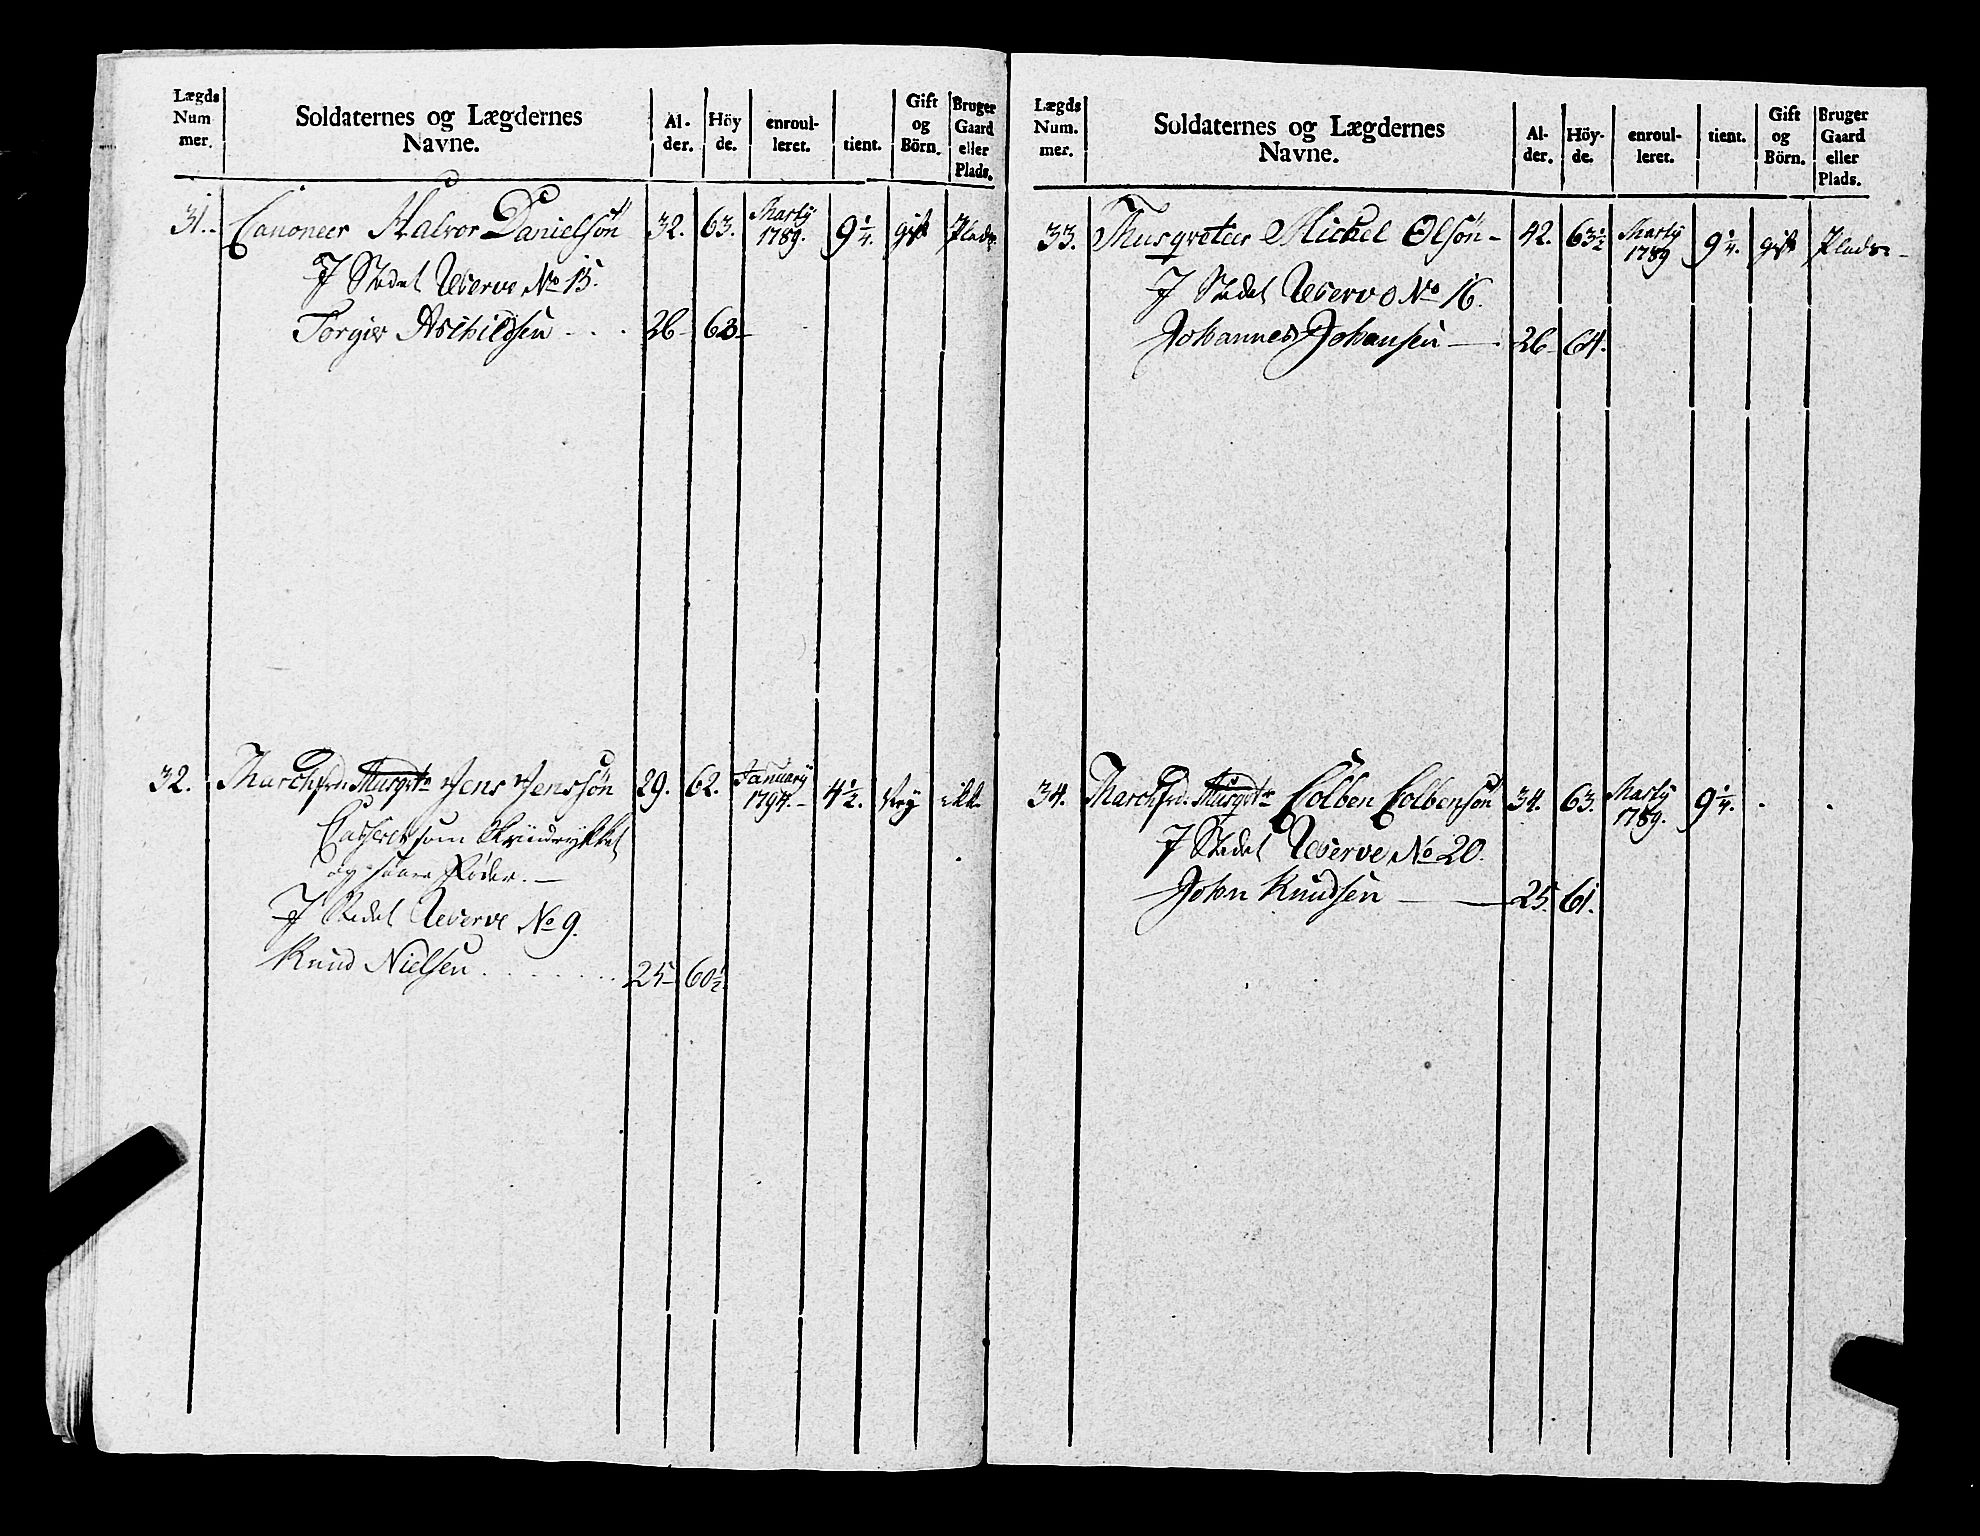 Lægds Num mer. Soldaternes og Lægdernes Navne. Al- der. Höy de. enroul- leret. tient. Gift og Börn. Bruger Gaard eller Plads.
31. Canoneer Halvor Danielsön 32. 63. Marty 1789. 9 1/4. gift Plads.
I Stedet Reserve No 15.
Torgier Aschildsen 26 63
32. Marchfrd. Musqvtr Jens Jenssön 29. 62. January 1794. 4 1/2. Ney ikke
Casseret som
og Föder.
I Stedet Reserve No 9.
Knud Nielsen 25 60 1/2.
Lægds Num. mer. Soldaternes og Lægdernes Navne. Al- der. Höy- de. enroul- leret. tient. Gift og Börn. Bruger Gaard eller Plads.
33. Musqveteer Michel Olsön 42. 63 1/2 Marty 1789 9 1/4. gift Plads
I Stedet Reserve No 16.
Johannes Johansen 26 64.
34. Marchfrd. Musqvtr Colben Colbensön 34. 63. Marty 1789. 9 1/4.
I Stedet Reserve No 20.
John Knudsen 25. 61.